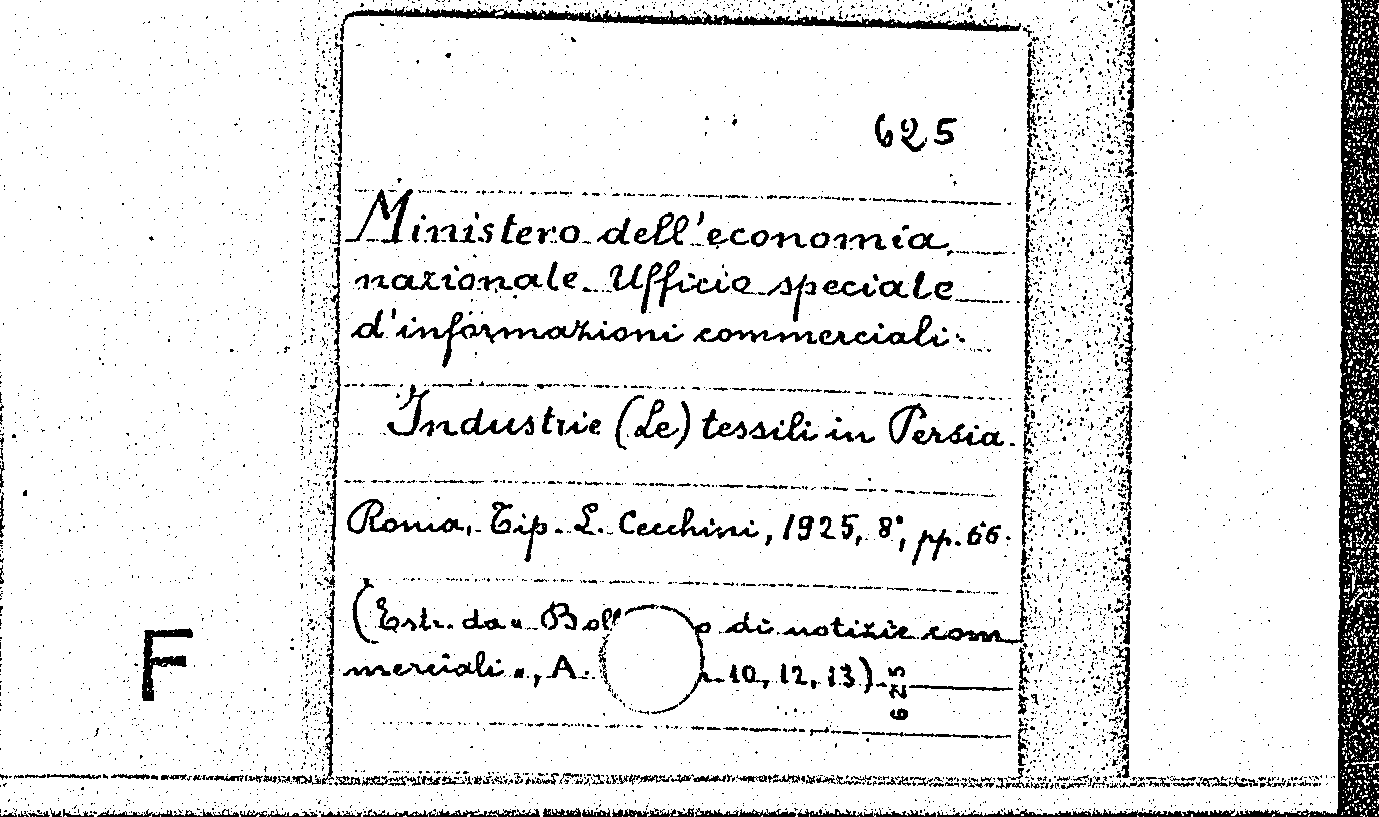 625
Ministero dell'economia
nazionale. Ufficio speciale
d'informazioni commerciali.
Industrie (Le) tessili in Persia.
Roma, Tip. L. Cecchini, 1925, 8°, pp. 66.
(Estr. da « di notizie com
merciali », A. 10, 12, 13).
625
F